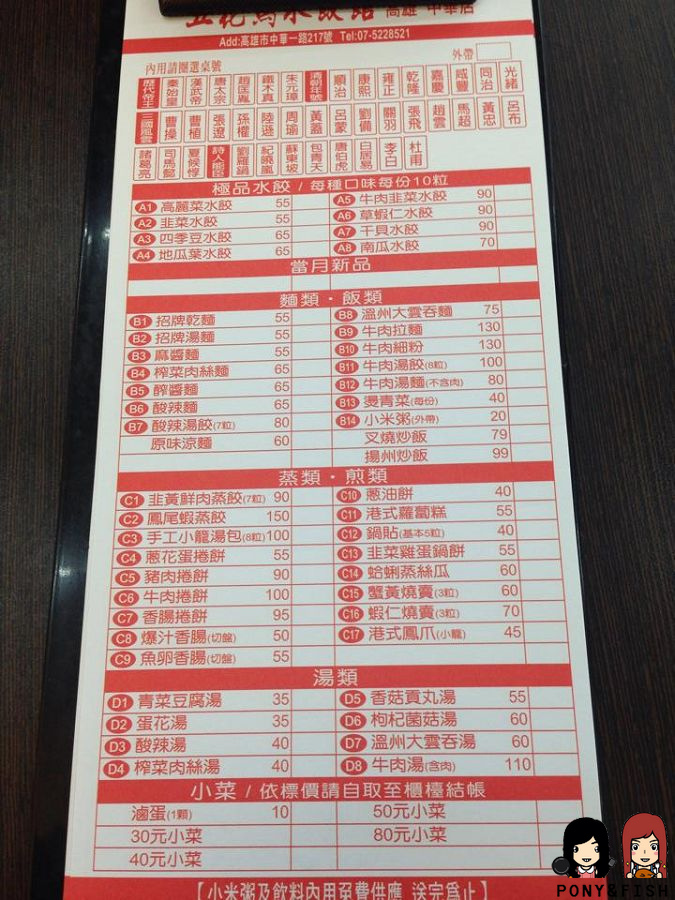 五花馬水餃館 高雄 中華店
Add:高雄市中華一路217號 Tel:07-5228521
內用請圈選桌號 外帶
歷代帝王 秦始皇 漢武帝 唐太宗 趙匡胤 鐵木真 朱元璋 清朝年號 順治 康熙 雍正 乾隆 嘉慶 咸豐 同治 光緒
三國風雲 曹操 曹植 張遼 孫權 陸遜 周瑜 黃蓋 呂蒙 劉備 關羽 張飛 趙雲 馬超 黃忠 呂布
諸葛亮 司馬懿 夏候惇 詩人能臣 劉羅鍋 紀曉嵐 蘇東坡 包青天 唐伯虎 白居易 李白 杜甫
極品水餃 / 每種口味每份10粒
A1 高麗菜水餃 55 A5 牛肉韭菜水餃 90
A2 韭菜水餃 55 A6 草蝦仁水餃 90
A3 四季豆水餃 65 A7 干貝水餃 90
A4 地瓜葉水餃 65 A8 南瓜水餃 70
當月新品
麵類·飯類
B1 招牌乾麵 55 B8 溫州大雲吞麵 75
B2 招牌湯麵 55 B9 牛肉拉麵 130
B3 麻醬麵 55 B10 牛肉細粉 130
B4 榨菜肉絲麵 65 B11 牛肉湯餃(8粒) 100
B5 醡醬麵 65 B12 牛肉湯麵(不含肉) 80
B6 酸辣麵 65 B13 燙青菜(每份) 40
B7 酸辣湯餃(7粒) 80 B14 小米粥(外帶) 20
原味涼麵 60 叉燒炒飯 79
揚州炒飯 99
蒸類·煎類
C1 韭黃鮮肉蒸餃(7粒) 90 C10 蔥油餅 40
C2 鳳尾蝦蒸餃 150 C11 港式蘿蔔糕 55
C3 手工小龍湯包(8粒)100 C12 鍋貼(基本5粒) 40
C4 蔥花蛋捲餅 55 C13 韭菜雞蛋鍋餅 55
C5 豬肉捲餅 90 C14 蛤蜊蒸絲瓜 60
C6 牛肉捲餅 100 C15 蟹黃燒賣(3粒) 60
C7 香腸捲餅 95 C16 蝦仁燒賣(3粒) 70
C8 爆汁香腸(切盤) 50 C17 港式鳳爪(小龍) 45
C9 魚卵香腸(切盤) 55
湯類
D1 青菜豆腐湯 35 D5 香菇貢丸湯 55
D2 蛋花湯 35 D6 枸杞菌菇湯 60
D3 酸辣湯 40 D7 溫州大雲吞湯 60
D4 榨菜肉絲湯 40 D8 牛肉湯(含肉) 110
小菜 / 依標價請自取至櫃檯結帳
滷蛋(1顆) 10 50元小菜
30元小菜 80元小菜
40元小菜
【小米粥及飲料內用免費供應 送完為止】
PONY&FISH